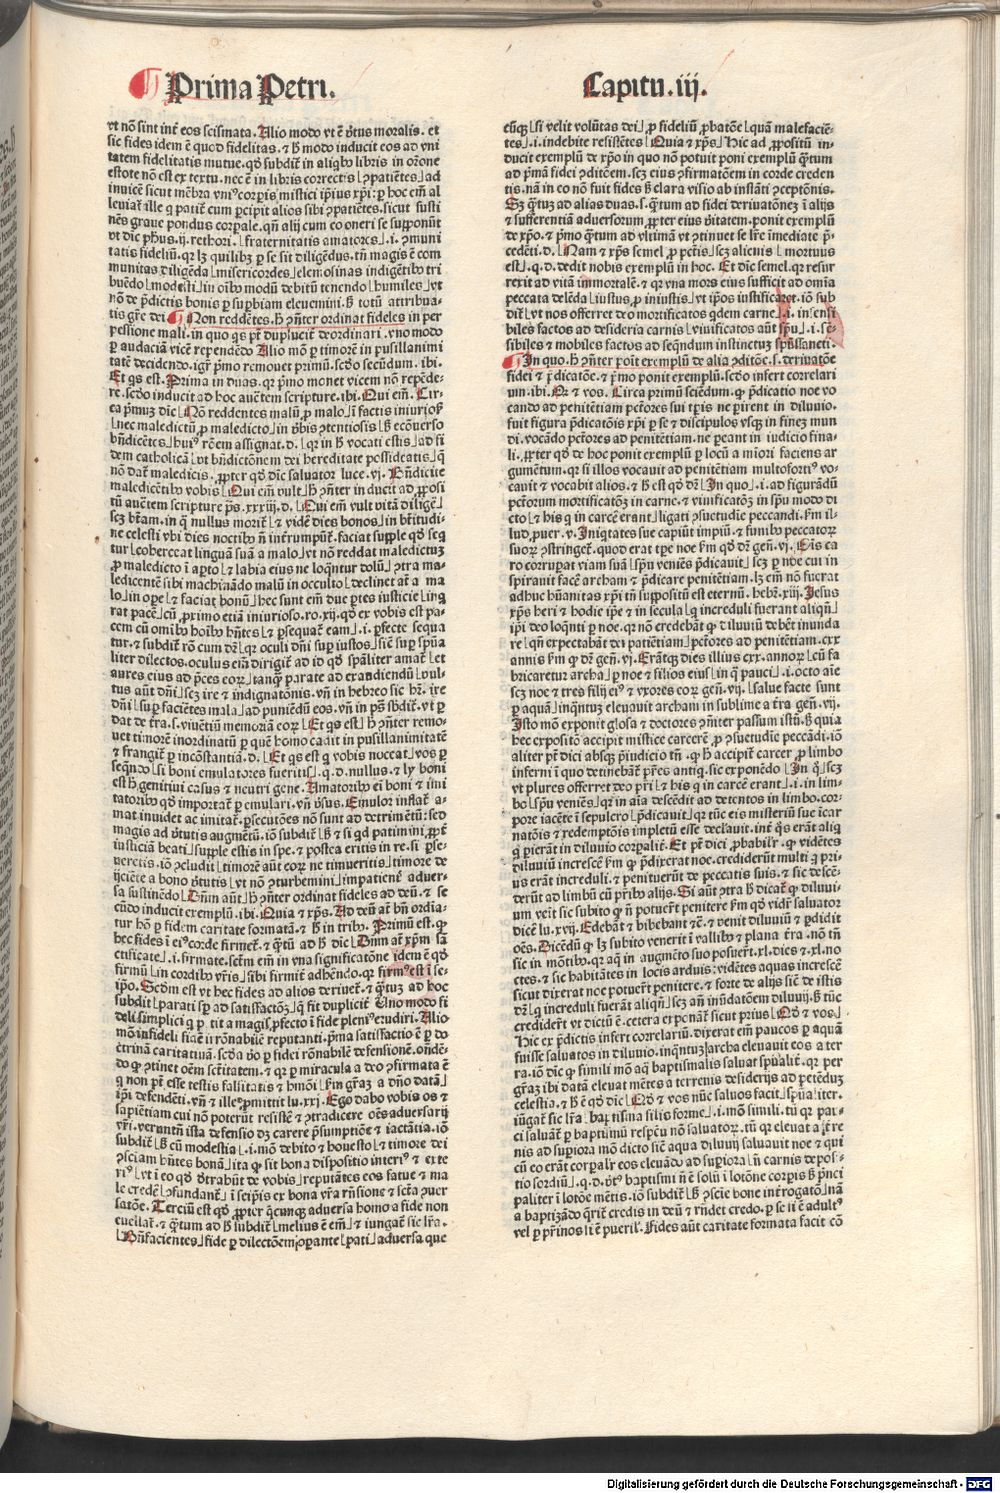 Prima Petri.
Capitu. iij.
vt nō sint int̄ eos scismata. Alio modo vt ē v̄tus moralis. et
sic fides idem ē quod fidelitas. ⁊ h̄ modo inducit eos ad vni
tatem fidelitatis mutue. qd̄ subdit̄ in aliqbꝰ libris in orōne
estote nō est ex textu. nec ē in libris correctis
inuicē sicut mēbra vniꝰ corpis mistici ip̄ius xp̄i: p hoc em̄ al
nēs graue pondus corpale. qn̄ alij cum eo oneri se supponūt
vt dic ph̄us. ij. rethori. fraternitatis amatores .i. ꝯmuni
tatis fideliū. qr lꝫ quilibꝫ p se sit diligēdus. tn̄ magis ē com
munitas diligēda misericordes elemosinas indigētibꝰ tri
buēdo modesti in oībꝰ modū debitū tenendo humiles vt
nō de p̄dictis bonis p supbiam eleuemini. h̄ totū attribua-
tis gr̄e dei Non reddētes. h̄ ꝯn̄ter ordinat fideles in per
pessione mali. in quo qs pt̄ duplicit̄ deordinari. vno modo
p audaciā vicē rependēdo Alio mō p timorē in pusillanimi
tatē decidendo. igr̄ p̄mo remouet primū. scd̄o secūdum. ibi.
Et qs est. Prima in duas. qr p̄mo monet vicem nō repēde-
re. scd̄o inducit ad hoc auc̄tem scripture. ibi. Qui em̄. Cir-
ca p̄muꝫ dic Nō reddentes malū p malo in factis iniuriosꝭ
nec maledictū p maledicto in v̄bis ꝯtentiosis h̄ ecōuerso
bn̄dicētes huiꝰ rōem assignat. d. qr in h̄ vocati estis ad fi
dem catholicā vt bn̄dictōnem dei hereditate possideatis q̄
nō dat̄ maledicis. ꝓpter qd̄ dic̄ saluator luce. vj. Bn̄dicite
maledicētibꝰ vobis Qui em̄ vult h̄ ꝯn̄ter inducit ad ꝓposi
tū auc̄tem scripture ps̄. xxxiij. d. Qui em̄ vult vitā diligē
scꝫ btām. in q̄ nullus morit̄ ⁊ videē dies bonos in btitudi-
ne celesti vbi dies noctibꝰ nō int̄rumpūt̄. faciat supple qd̄ seq̄
tur coherceat linguā suā a malo vt nō reddat maledictuꝫ
p maledicto ī apto ⁊ labia eius ne loq̄ntur dolū ꝯtra ma-
ledicentē sibi machinādo malū in occulto declinet at̄ a ma
lo in ope ⁊ faciat bonū hec sunt em̄ due ptes iusticie inq̄
rat pacē cū proximo etiā iniurioso. ro. xij. qd̄ ex vobis est pa-
cem cū omībꝰ hoībꝰ hn̄tes ⁊ psequat̄ eam .i. pfecte sequa
tur. ⁊ subdit̄ rō cum dr̄ qr oculi dn̄i sup iustos sic̄ sup spūa
liter dilectos. oculus em̄ dirigit̄ ad id qd̄ spāliter amat̄ et
aures eius ad p̄ces eoꝝ tanq̄ parate ad exaudiendū vul-
tus aūt dn̄i scꝫ ire ⁊ indignatōnis. vn̄ in hebreo sic hr̄. ire
dn̄i sup faciētes mala ad puniēdū eos. vn̄ in ps̄ sbdit̄. vt p
dat de tr̄a .s. viuētiū memoriā eoꝝ Et qs est h̄ ꝯn̄ter remo-
uet timorē inordinatū p quē homo cadit in pusillanimitatē
⁊ frangit̄ p incōstantiā. d. Et qs est q vobis noceat vos p
seq̄ndo si boni emulatores fueritis .q.d. nullus. ⁊ ly boni
est h̄ genitiui casus ⁊ neutri gene. Amatoribꝰ ei boni ⁊ imi
tatoribꝰ qd̄ importat̄ p emulari. vn̄ v̄sus. Emulor inflat̄ a-
mat inuidet ac imitat̄. psecutōes nō sunt ad detrimētū: sed
magis ad v̄tutis augmētū. iō subdit̄ h̄ ⁊ si qd patimini ꝓpt̄
iusticiā beati supple estis in spe. ⁊ postea eritis in re. si pse-
uereris. iō ꝯcludit timorē aūt eoꝝ ne timueritis timore de
ijciēte a bono v̄tutis vt nō ꝯturbemini impatienē aduer-
sa sustinēdo Dn̄m aūt h̄ ꝯn̄ter ordinat fideles ad deū. ⁊ se
cūdo inducit exemplū. ibi. Quia ⁊ xp̄s. Ad deū at̄ bn̄ ordia-
tur hō p fidem caritate formatā. ⁊ h̄ in tribꝰ. Primū est. ꝙ
hec fides ī eiꝰ corde firmet̄. ⁊ q̄tū ad h̄ dic̄ Dn̄m at̄ xp̄m sā
ctificate .i. firmate. sctm̄ em̄ in vna significatōne idem ē qd̄
firmū in cordibꝰ vr̄is sibi firmit̄ adhēndo. qr firmꝰ est ī se-
ip̄o. Scd̄m est vt hec fides ad alios deriuet̄. ⁊ q̄tuꝫ ad hoc
subdit parati sp ad satisfactōꝫ q̄ fit duplicit̄ Uno modo fi
deli simplici q p tit a magis pfecto ī fide pleniꝰ erudiri. Alio
mō infideli fidē ii rōnabilē reputanti. p̄ma satisfactio ē p do
ctrinā caritatiuā. scd̄a v̄o p fidei rōnabilē defensionē. on̄dē-
do ꝙ ꝯtinet oēm sctītatem. ⁊ qr p miracula a deo ꝯfirmata ē
q non pt̄ esse testis falsitatis ⁊ hmōi km̄ grāꝫ a dn̄o datā
ip̄i defendēti. vn̄ ⁊ ille ꝓmittit lu. xxj. Ego dabo vobis os ⁊
sapiētiam cui nō poterūt resistē ⁊ ꝯtradicere oēs aduersarij
vr̄i. veruntn̄ ista defensio dꝫ carere p̄sumptiōe ⁊ iactātia. iō
subdit̄ h̄ cū modestia .i. mō debito ⁊ honesto ⁊ timore dei
ꝯsciam hn̄tes bonā ita ꝙ sit bona dispositio interiꝰ ⁊ exte
riꝰ vt ī eo qd̄ ꝯtrabūt de vobis reputātes eos fatue ⁊ ma
le credē ꝯfundant̄ ī seip̄is ex bona vr̄a rn̄sione ⁊ sctā ꝯuer
satōe. Terciū est qd̄ ꝓpter q̄cunqꝫ aduersa homo a fide non
euellat̄. ⁊ q̄tum ad h̄ subdit̄ melius ē em̄ ⁊ iungat̄ sic lr̄a.
Bn̄facientes fide p dilectōem opante pati aduersa que
eūqꝫ si velit volūtas dei ꝓ fideliū ꝓbatōe quā malefaciē-
tes .i. indebite resistētes Quia ⁊ xp̄s Hic ad ꝓpositū in-
ducit exemplū de xp̄o in quo nō potuit poni exemplū q̄tum
ad p̄mā fidei ꝯditōem. scꝫ eius ꝯfirmatōem in corde creden
tis. nā in eo nō fuit fides h̄ clara visio ab instāti ꝯceptōnis.
Sꝫ q̄tuꝫ ad alias duas .s. q̄tum ad fidei deriuatōneꝫ ī alijs
⁊ sufferentiā aduersorum ꝓpter eius v̄itatem. ponit exemplū
de xp̄o. ⁊ p̄mo q̄tum ad vltimā vt ꝯtinuet se lr̄e īmediate p̄-
cedēti. d. Nam ⁊ xp̄s semel ꝓ pctīs scꝫ alienis mortuus
est .q.d. dedit nobis exemplū in hoc. Et dic̄ semel. qr resur
rexit ad vitā immortalē. ⁊ qr vna mors eius sufficit ad omīa
peccata delēda iustus ꝓ iniustis vt ip̄os iustificaret. iō sub
dit̄ vt nos offerret deo mortificatos qdem carne .i. insensi
biles factos ad desideria carnis viuificatos aūt spū .i. se-
sibiles ⁊ mobiles factos ad seq̄ndum instinctuꝫ spūssancti.
In quo. h̄ ꝯn̄ter poīt exemplū de alia ꝯditōe .s. deriuatōe
fidei ⁊ p̄dicatōe. ⁊ p̄mo ponit exemplū. scd̄o infert correlari
um. ibi. Qd̄ ⁊ vos. Circa primū sciēdum. ꝙ p̄dicatio noe vo
cando ad penitētiam pctōres sui tp̄is ne pirent in diluuio.
fuit figura p̄dicatōis xp̄i p se ⁊ discipulos vsqꝫ in fineꝫ mun
di. vocādo pctōres ad penitētiam. ne peant in iudicio fina-
li. ꝓpter qd̄ de hoc ponit exemplū p locū a miori faciens ar
gumētum. qr si illos vocauit ad penitētiam multofortiꝰ vo-
cauit ⁊ vocabit alios. ⁊ h̄ est qd̄ dr̄ In quo .i. ad figurādū
pctōrum mortificatōꝫ in carne. ⁊ viuificatōꝫ in spū modo di
cto ⁊ his q in carcē erant ligati ꝯsuetudīe peccandi. km̄ il-
lud puer. v. Iniqtates sue capiūt impiū. ⁊ funibꝰ peccatoꝝ
suoꝝ ꝯstringet̄. quod erat tpe noe km̄ qd̄ dr̄ gen̄. vj. Ois ca
ro corrupat viam suā spū veniēs p̄dicauit scꝫ p noe cui in
spirauit facē archam ⁊ p̄dicare penitētiam. lꝫ em̄ nō fuerat
adhuc hūanitas xp̄i tn̄ suppositū est eternū. hebr̄. xiij. Jesus
xp̄s heri ⁊ hodie ip̄e ⁊ in secula q increduli fuerant aliqn̄
ip̄i deo loq̄nti p noe. qr nō credebāt ꝙ diluuiū debēt inunda
re qn̄ expectabāt dei patiētiam pctōres ad penitētiam. cxx
annis km̄ ꝙ dr̄ gen̄. vj. Erātqꝫ dies illius cxx. annoꝝ cū fa
bricaretur archa p noe ⁊ filios eius in q̄ pauci .i. octo aīe
scꝫ noe ⁊ tres filij eiꝰ ⁊ vxores eoꝝ gen̄. vij. salue facte sunt
p aquā inq̄ntuꝫ eleuauit archam in sublime a tr̄a gen̄. vij.
Isto mō exponit glosa ⁊ doctores ꝯn̄iter passum istū. h̄ quia
hec expositō accipit mistice carcerē ꝓ ꝯsuetudīe peccādi. iō
aliter pt̄ dici absqꝫ p̄iudicio tn̄. ꝙ h̄ accipit̄ carcer ꝓ limbo
inferni ī quo detinebāt̄ pr̄es antiq. sic exponēdo In q̄ scꝫ
vt plures offerret deo pr̄i ⁊ his q in carcē erant .i. in lim-
bo spū veniēs qr in aīa descēdit ad detentos in limbo. cor-
pore iacēte ī sepulcro p̄dicauit qr tūc eis misteriū sue īcar
natōis ⁊ redemptōis impletū esse declauit. int̄ qs erāt aliq
q pierāt in diluuio corpalit̄. Et pt̄ dici ꝓbabilr̄. ꝙ vidētes
diluuiū increscē km̄ ꝙ p̄dixerat noe. crediderūt multi q pri-
us erāt increduli. ⁊ penituerūt de peccatis suis. ⁊ sic descē-
derūt ad limbū cū pr̄ibꝰ alijs. Si aūt ꝯtra h̄ dicat̄ ꝙ diluui-
um veīt sic subito ꝙ n̄ potuert̄ penitere km̄ qd̄ videt̄ saluator
dicē lu. xvij. Edebāt ⁊ bibebant ⁊ē. ⁊ venit diluuiū ⁊ pdidit
oēs. Dicēdū ꝙ lꝫ subito venerit ī vallibꝰ ⁊ plana tr̄a. nō tn̄
sic in mōtibꝰ. qr aq̄ in augmēto suo posuert̄. xl. dies ⁊ .xl. no
ctes. ⁊ sic habitātes in locis arduis: vidētes aquas increscē
sicut dixerat noe potuert̄ penitere. ⁊ forte de alijs sic̄ de istis
dr̄ q increduli fuerāt aliqn̄ scꝫ an̄ inūdatōem diluuij. h̄ tūc
credidert̄ vt dictū ē. cetera et ponāt̄ sicut prius Qd̄ ⁊ vos.
Hic ex p̄dictis infert correlariū. dixerat em̄ paucos p aquā
fuisse saluatos in diluuio. inq̄ntuꝫ archa eleuauit eos a ter
ra. iō dic̄ ꝙ simili mō aq̄ baptismalis saluat spūalit̄. qr per
grāꝫ ibi datā eleuat mētes a terrenis desiderijs ad petēduꝫ
celestia. ⁊ h̄ ē qd̄ dic̄ Qd̄ ⁊ vos nūc saluos facit spūaliter.
iūgat̄ sic lr̄a baptisma silis forme .i. mō simili. tū qr pau-
ci saluāt̄ p baptismū respcū nō saluatoꝝ. tū qr eleuat a tr̄re
nis ad supiora mō dicto sic̄ aqua diluuij saluauit noe ⁊ qui
cū eo erāt corpalr̄ eos eleuādo ad supiora n̄ carnis depos-
tio sordiū .q.d. v̄tꝰ baptismi n̄ ē solū ī lotōe corpis h̄ p̄nci
paliter ī lotōe mētis. iō subdit̄ h̄ ꝯscie bone int̄rogatō nā
a baptizādo q̄rit̄ credis in deū ⁊ rn̄det credo. p se si ē adultꝰ
vel p pr̄inos si ē pueril. Fides aūt caritate formata facit cō
Digitalisierung gefördert durch die Deutsche Forschungsgemeinschaft - DFG